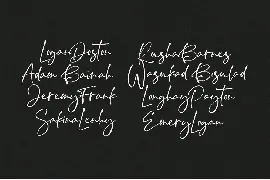 Logan Deston
Adam Bainah
Jeremy Frank
Sakina Lenhy
Rusha Barnes
Wasukad Bisulad
Longhay Payton
Emery Logan